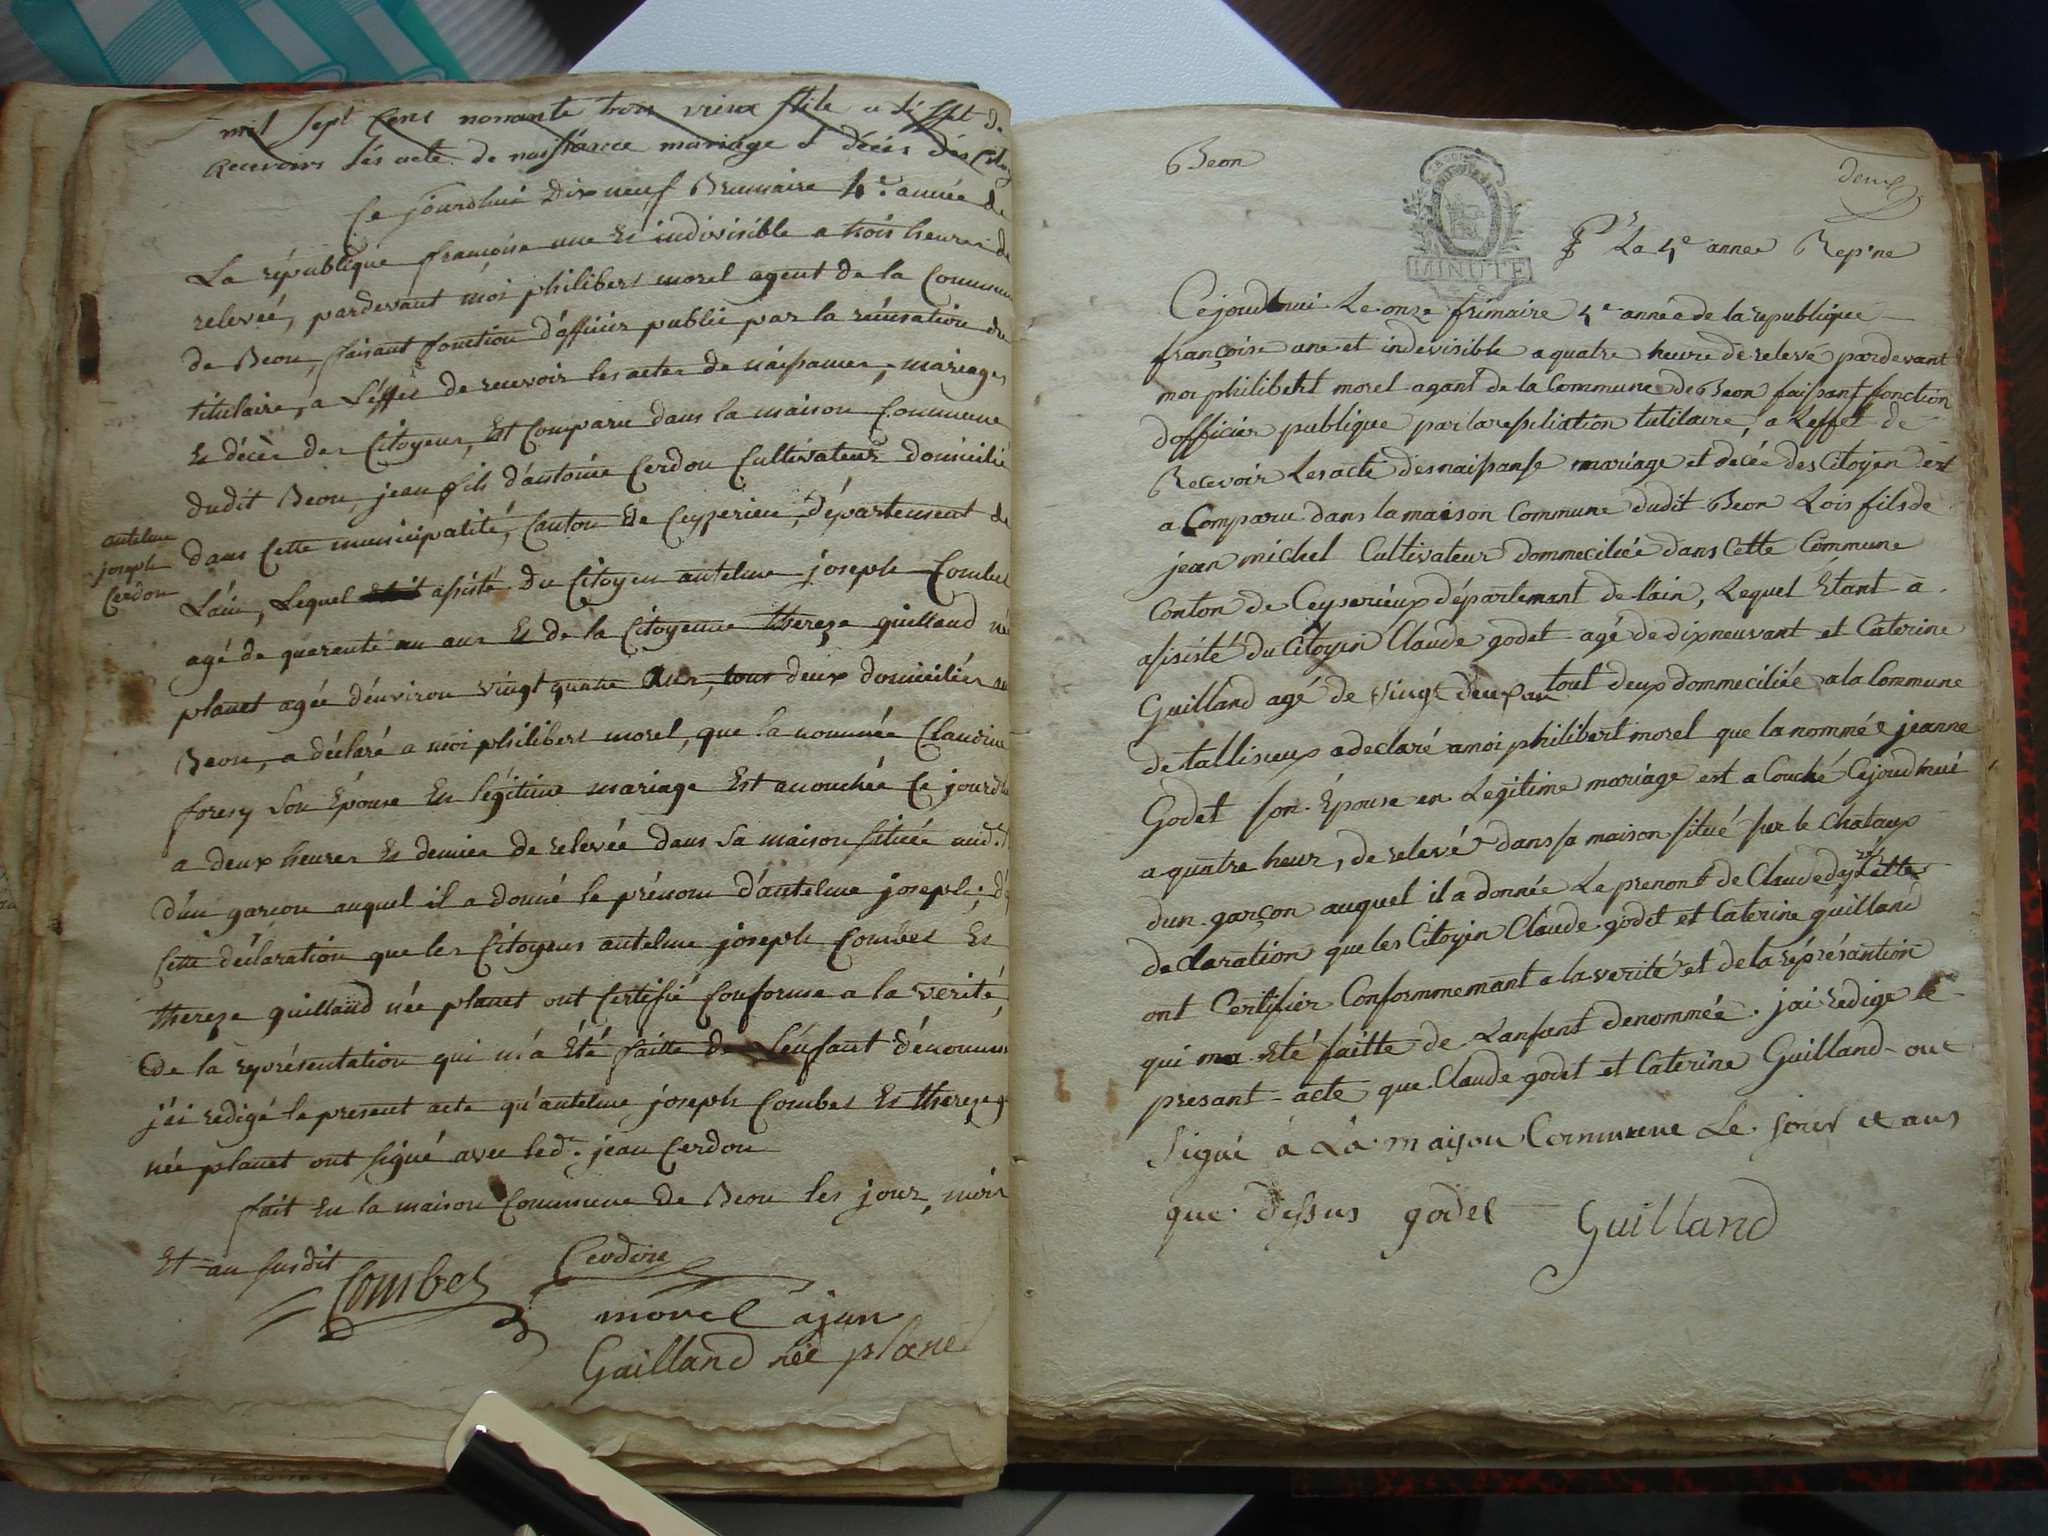 mil sept cens nonante trois vieux stile a l'effet de
recevoirs lés acte de naissance mariage & décés dés Citoy
Ce jourdhui dix neuf Brumaire 4e. année de
La république françoise une Et indivisible a trois heures de
relevée, pardevant moi philibert morel agent de la Commune
de Beon, faisant fonction d'officier public par la
titulaire, a L'éffet de recevoir les actes de naissances, mariages
Et décès des Citoyens, Est Comparu dans la maison Commune
dudit Beon, jean fils d'antoine Cerdon Cultivateur domicilié
antelme
joseph
Cerdon
dans Cette municipalité, Canton de Ceyzerieu, département de
L'ain, Lequel assisté du Citoyen antelme joseph Combet
agé de quarente un ans Et de la Citoyenne thereze guilland née
planet agée d'environ vingt quatre ans, tous deux domiciliés au
Beon, a déclaré a moi philibert morel, que la nommée Claudine
foresy son Épouse En légitime mariage Est acouchée Ce jourd'hui
a deux heures Et demie de relevée dans sa maison située aud.
d'un garcon auquel il a donné le prénom d'antelme joseph;
Cette déclaration que les Citoyens antelme joseph Combet Et
thereze guilland née planet ont Certifié Conforme a la vérité,
De la représentation qui m'a Été faitte de L'énfant dénommé
j'ai redigé le present acte qu'antelme joseph Combet Et thereze g
née planet ont signé avec led. jean Cerdon
fait En la maison Commune de Beon les jour, mois
Et an susdit
Combet Cerdon
morel ajan
Guilland née planet
Beon
MINUTE
deux
Pr La 4e annee Rep'ne
Cejourdhui Le onze frimaire 4e année de la republique
françoise une et indevisible a quatre heure de relevé pardevant
moi philibert morel agant de la Commune de Beon faissant fonction
dofficier publique par la tutilaire, a L'effet de
Recevoir Les acte des naissanse mariage et décée des Citoyen dest
a Comparu dans la maison Commune dudit Beon Lois fils de
jean michel Cultivateur dommeciliée dans Cette Commune
Conton de Ceyserieux département de l'ain, Lequel Etant a
assisté du Citoyen Claude godet agé de dixneuvant et Caterine
Guilland agé de vingt deux an tout deux dommeciliée a la Commune
de tallisieux a declaré a moi philibert morel que la nommée jeanne
Godet son Épouse en Legitime mariage est a Couché Cejourdhuié
a quatre heur, de relevé dans sa maison situé sur le Chataux
dun garçon auquel il a donnée Le prenont de Claude Cette
declaration que les Citoyen Claude godet et Caterine guilland
ont Certifier Conformmemant a la verité et de la réprésantion
qui ma été faitte de L'anfant denommée. jai redige le
presant acte que Claude godet et Caterine Guilland ont
signé à La maison Commune Le jour et ans
que dessus godet Guilland